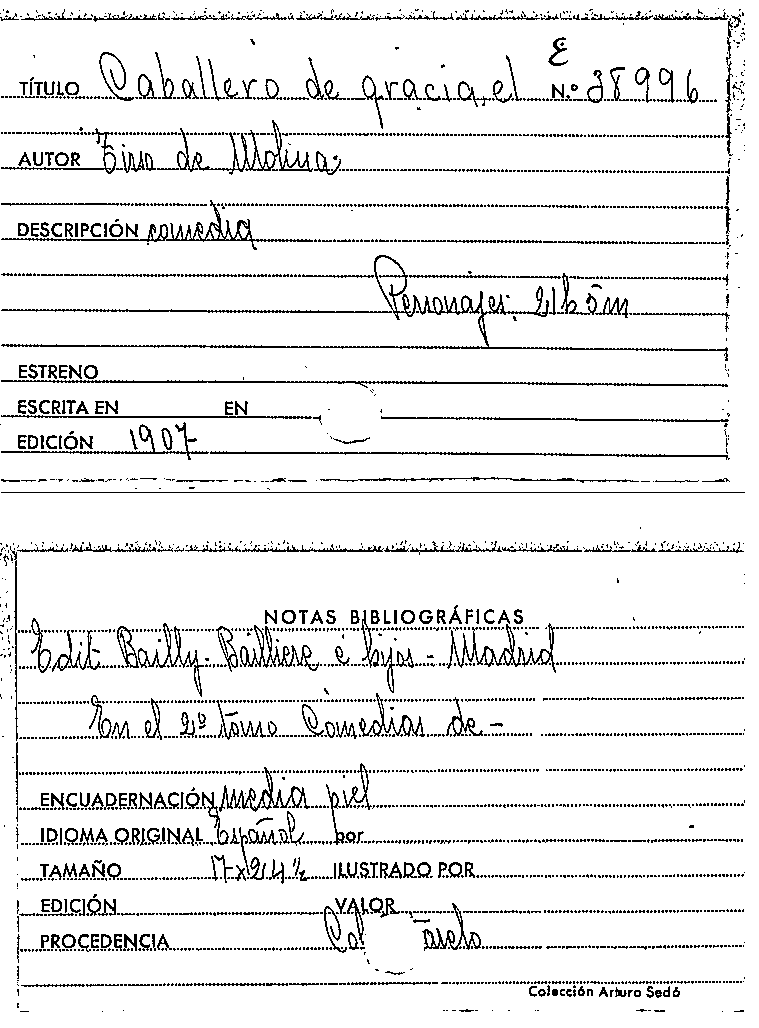 E
TÍTULO Caballero de gracia, el N.º 38996
AUTOR Tirso de Molina
DESCRIPCIÓN comedia
Personajes: 21h 5m
ESTRENO
ESCRITA EN EN
EDICIÓN 1907
NOTAS BIBLIOGRÁFICAS
Edit. Bailly-Bailliere é hijos - Madrid
En el 2º tomo Comedias de -
ENCUADERNACIÓN media piel
IDIOMA ORIGINAL Español por
TAMAÑO 17x24½ ILUSTRADO POR
EDICIÓN VALOR
PROCEDENCIA
Colección Arturo Sedó